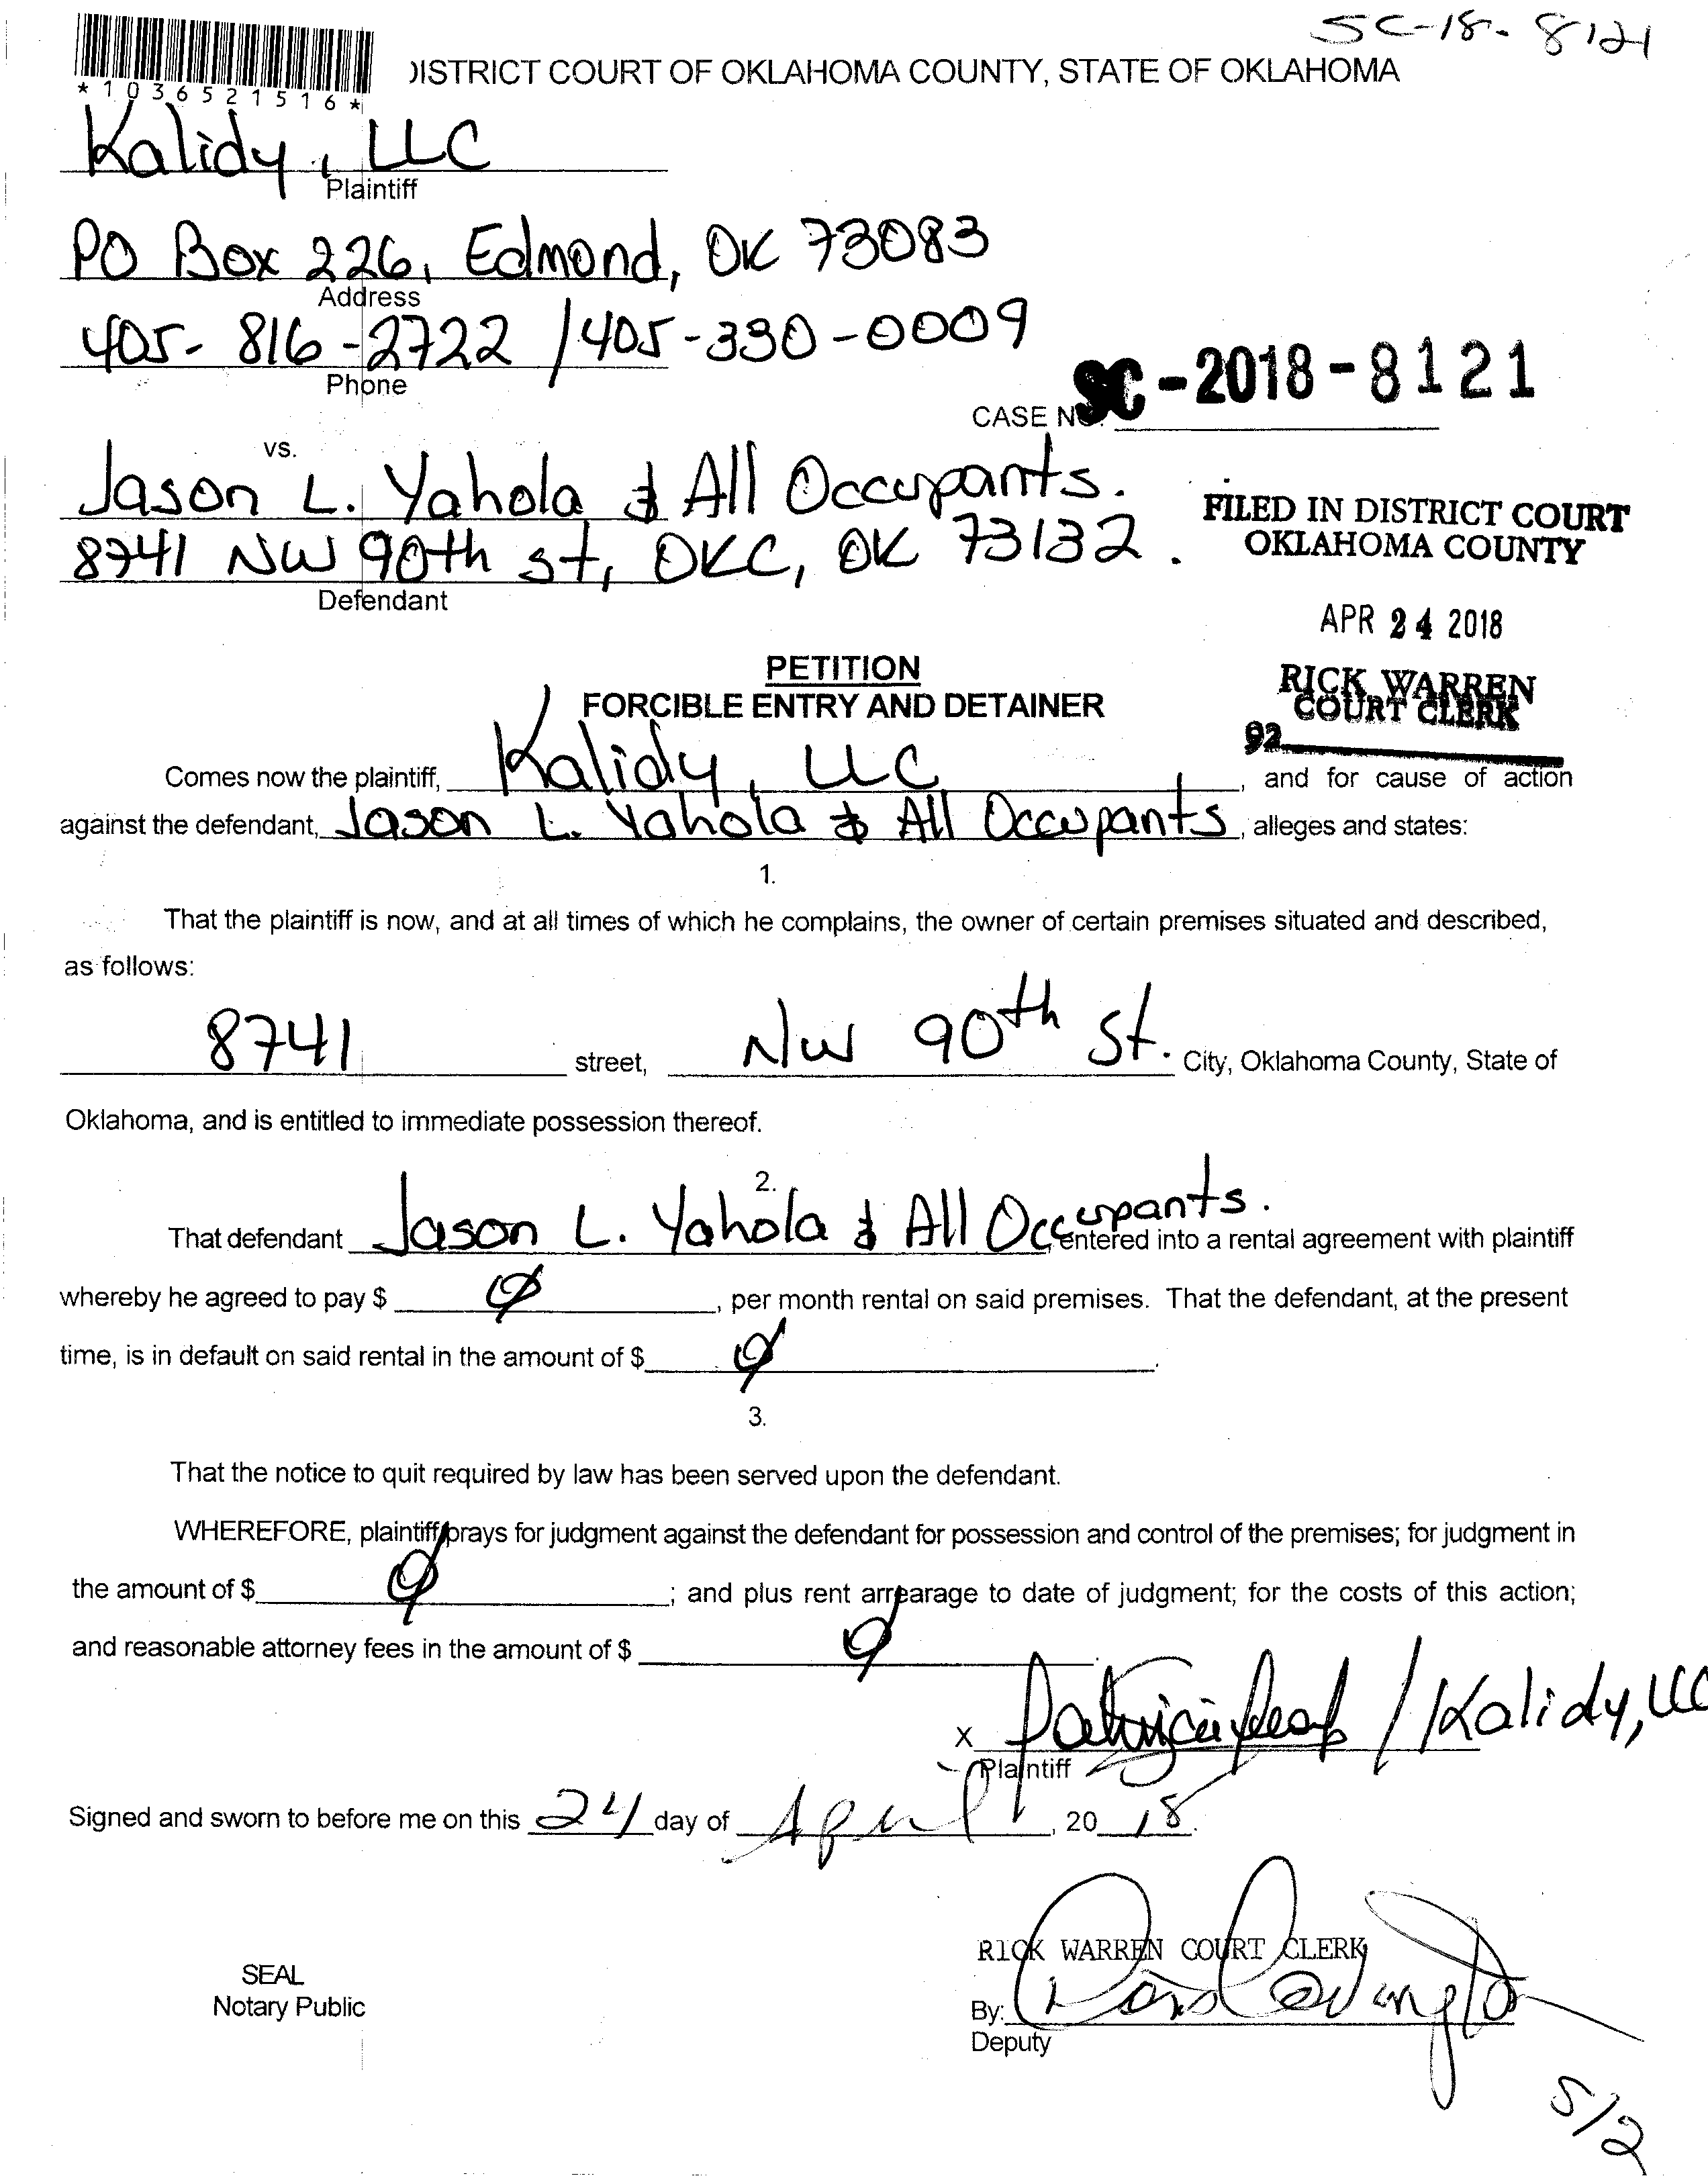 SC-18-8121
*1036521516*
DISTRICT COURT OF OKLAHOMA COUNTY, STATE OF OKLAHOMA
Kalidy, LLC
Plaintiff
PO Box 226, Edmond, OK 73083
Address
405-816-2722 / 405-330-0009
Phone
CASE NO. SC-2018-8121
vs.
Jason L. Yahola & All Occupants.
8741 NW 90th st, OKC, OK 73132.
Defendant
FILED IN DISTRICT COURT
OKLAHOMA COUNTY
APR 24 2018
RICK WARREN
COURT CLERK
92
PETITION
FORCIBLE ENTRY AND DETAINER
Comes now the plaintiff, Kalidy, LLC, and for cause of action
against the defendant, Jason L. Yahola & All Occupants, alleges and states:
1.
That the plaintiff is now, and at all times of which he complains, the owner of certain premises situated and described,
as follows:
8741 street, NW 90th St. City, Oklahoma County, State of
Oklahoma, and is entitled to immediate possession thereof.
2.
That defendant Jason L. Yahola & All Occupants. entered into a rental agreement with plaintiff
whereby he agreed to pay $ Ø, per month rental on said premises. That the defendant, at the present
time, is in default on said rental in the amount of $ Ø.
3.
That the notice to quit required by law has been served upon the defendant.
WHEREFORE, plaintiff prays for judgment against the defendant for possession and control of the premises; for judgment in
the amount of $ Ø; and plus rent arrearage to date of judgment; for the costs of this action;
and reasonable attorney fees in the amount of $ Ø.
X Patricia / Kalidy, LLC
Plaintiff
Signed and sworn to before me on this 24 day of April, 2018.
RICK WARREN COURT CLERK
SEAL
Notary Public
By:
Deputy
5/2